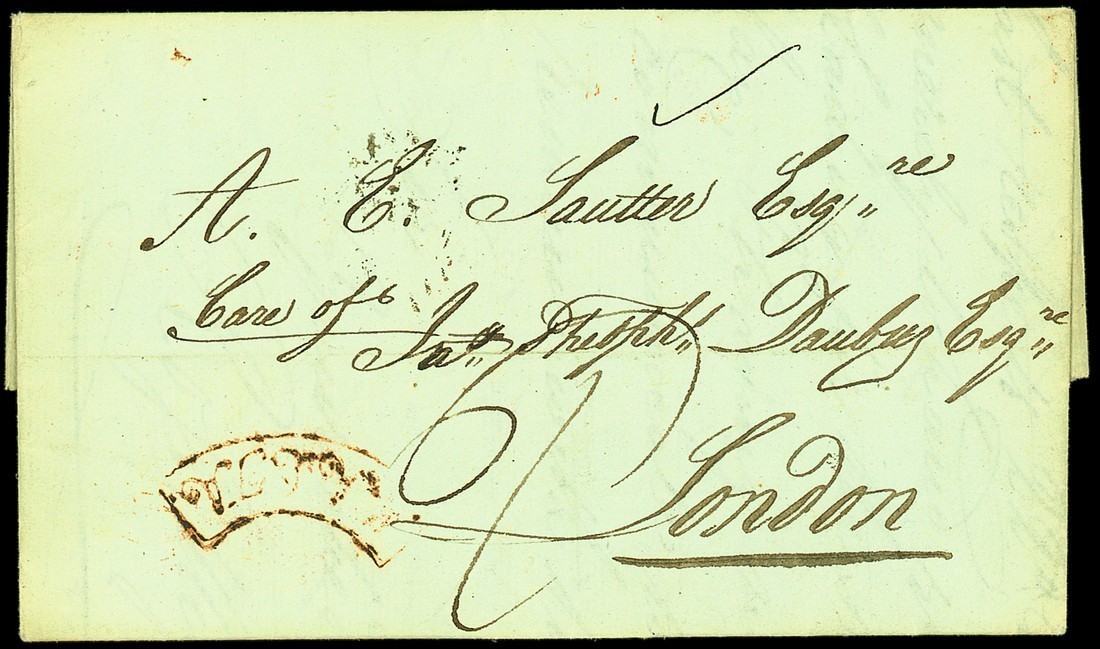 A. E. Sautter Esq.re
Care of Jas. Theoph.l Daubuz Esq.re
London